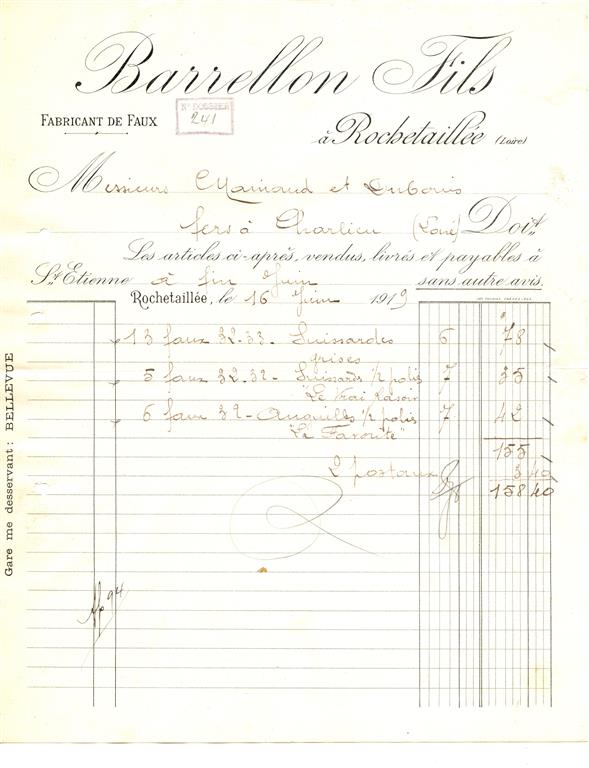 Barrellon Fils
FABRICANT DE FAUX
N° DOSSIER
241
à Rochetaillée (Loire)
Messieurs Mainaud et Dubouis
fers à Charlieu (Loire) Doivt
Les articles ci-après, vendus, livrés et payables à
St Etienne à fin Juin sans autre avis.
Rochetaillée, le 16 Juin 1919
13 faux 32-33- Suissardes 6 78
grises
5 faux 32-32- Suissards 1/2 polis 7 35
"Le Vrai Rasoir"
6 faux 32- Anguilles 1/2 polis 7 42
"La Favorite"
155
2 postaux 3 40
158 40
94
Gare me desservant: BELLEVUE